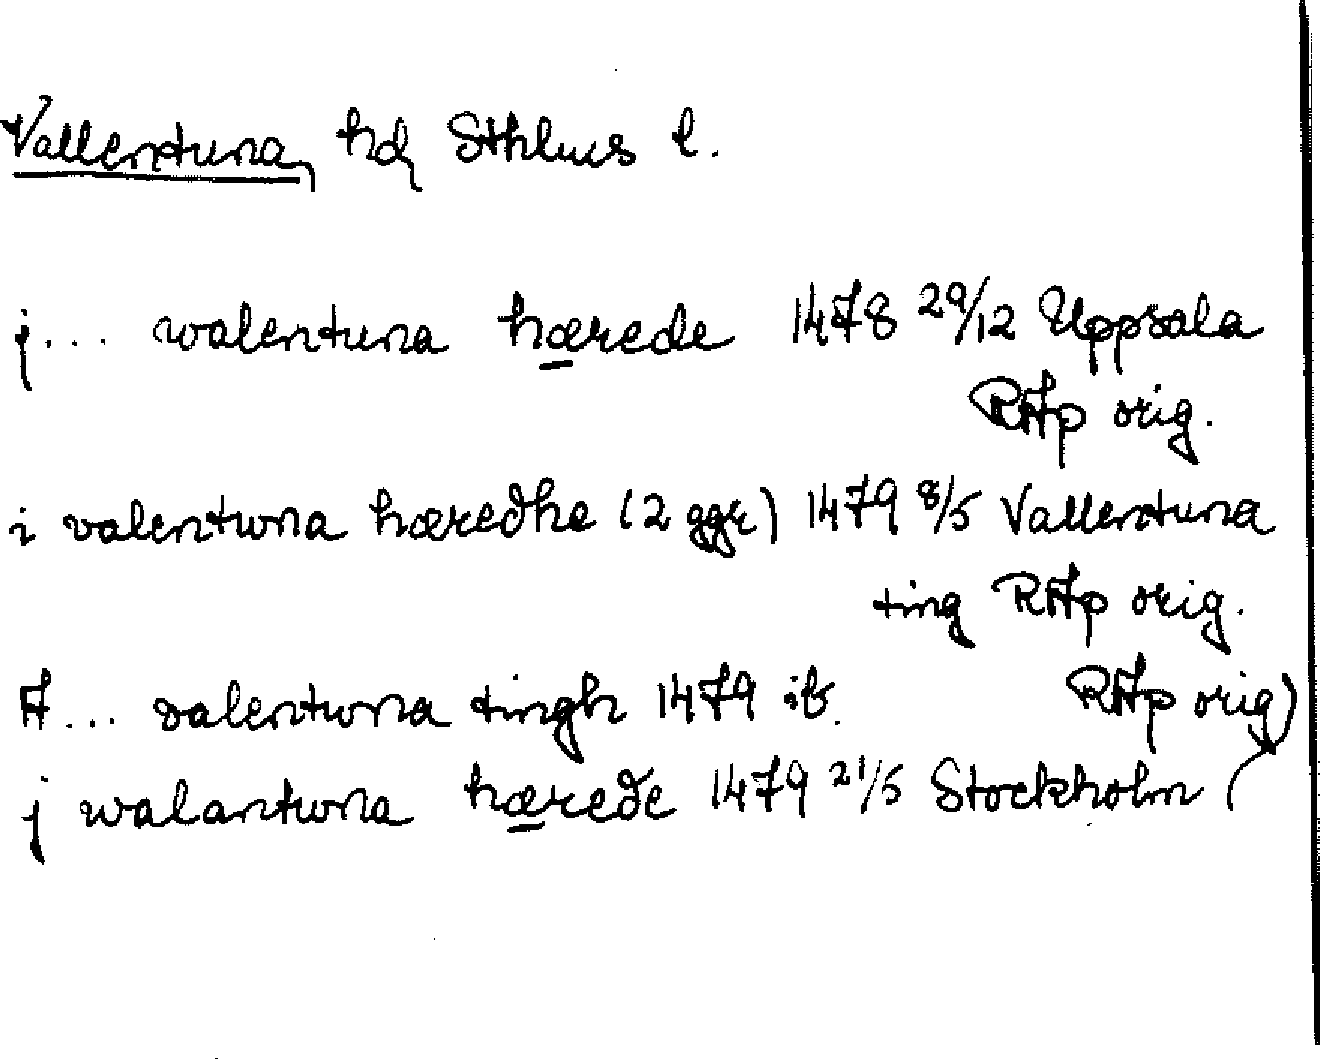 Vallentuna, hd, Sthlms l.
j... walentuna hærede 1478 29/12 Uppsala
RAp orig.
i valentwna hæredhe (2 ggr) 1479 8/5 Vallentuna
ting RAp orig.
A... valentwna tingh 1479 ib. RAp orig)
j walantwna hærede 1479 21/5 Stockholm (